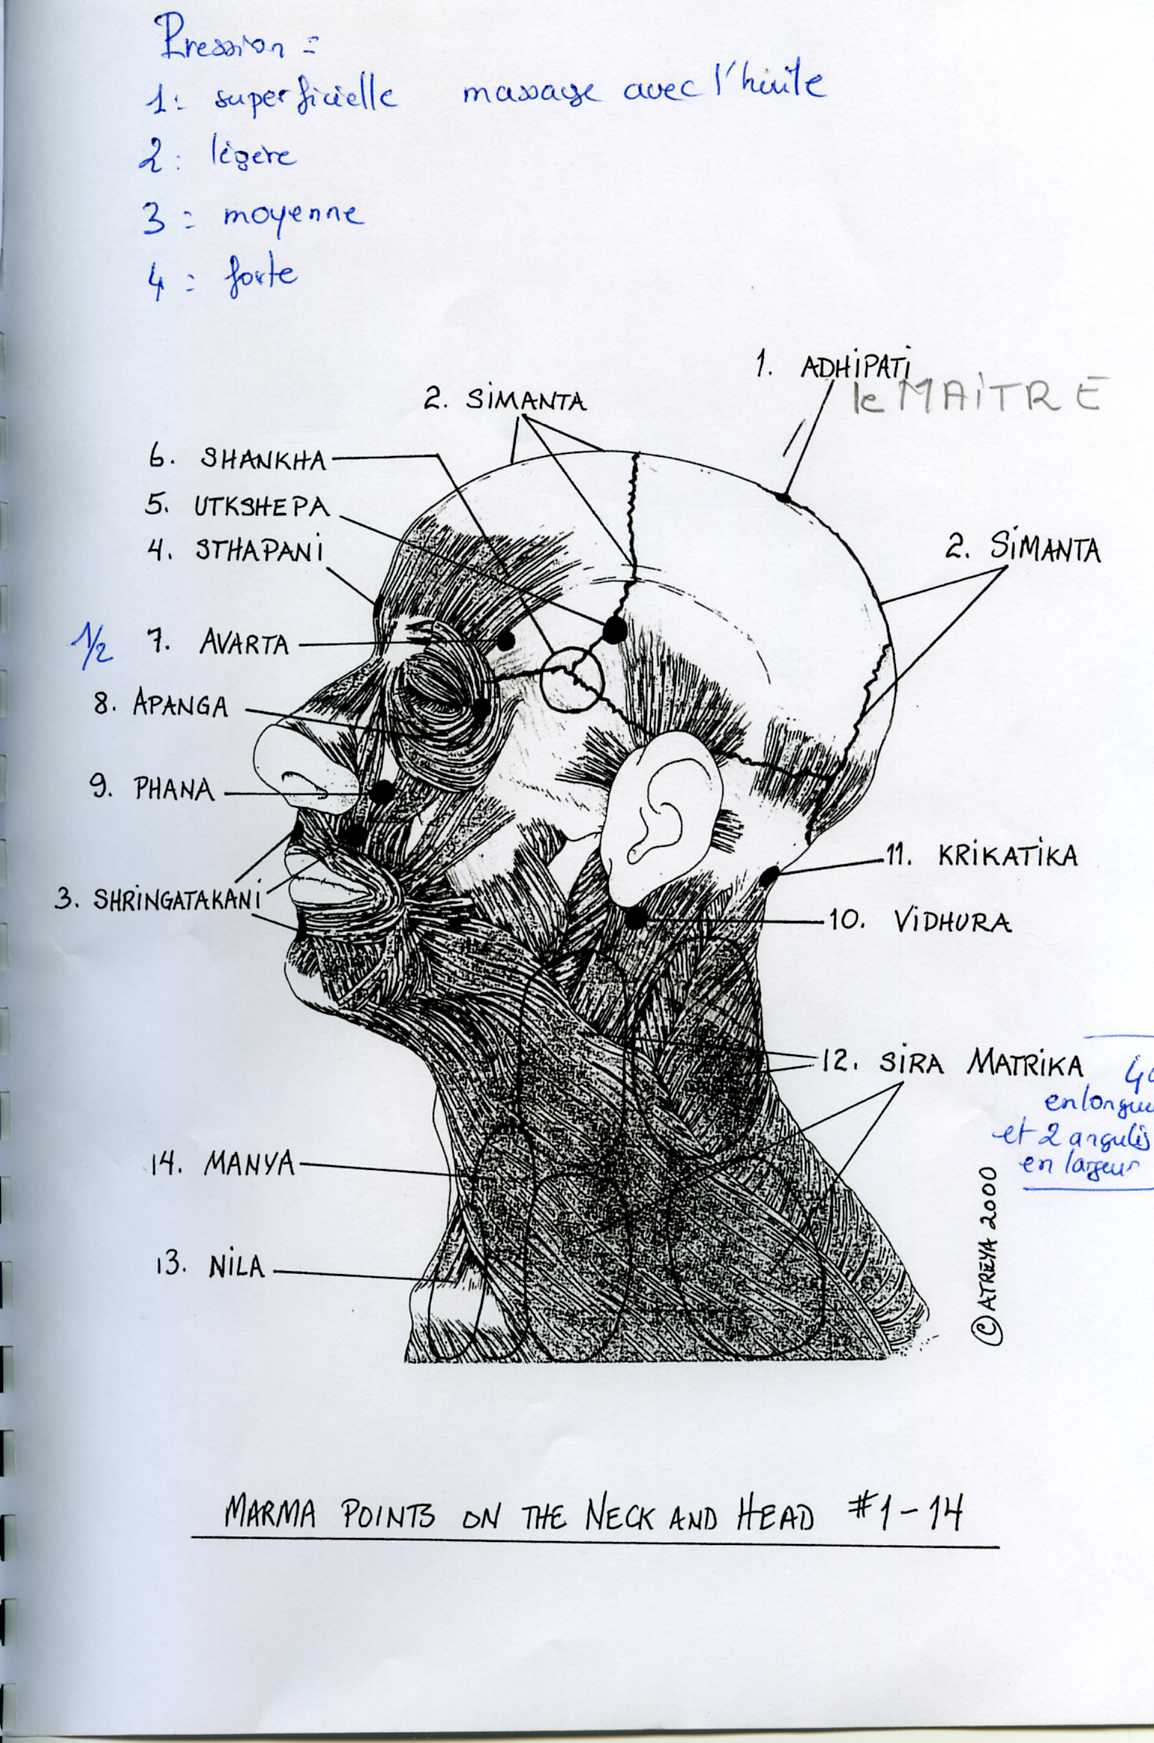 Pression =
1: superficielle massage avec l'huile
2: légère
3 = moyenne
4 = forte
1. ADHIPATI
le MAITRE
2. SIMANTA
6. SHANKHA
5. UTKSHEPA
4. STHAPANI
2. SIMANTA
1/2 7. AVARTA
8. APANGA
9. PHANA
11. KRIKATIKA
3. SHRINGATAKANI
10. VIDHURA
12. SIRA MATRIKA
et 2 angulis
en largeur
14. MANYA
13. NILA
© ATREYA 2000
MARMA POINTS ON THE NECK AND HEAD #1-14